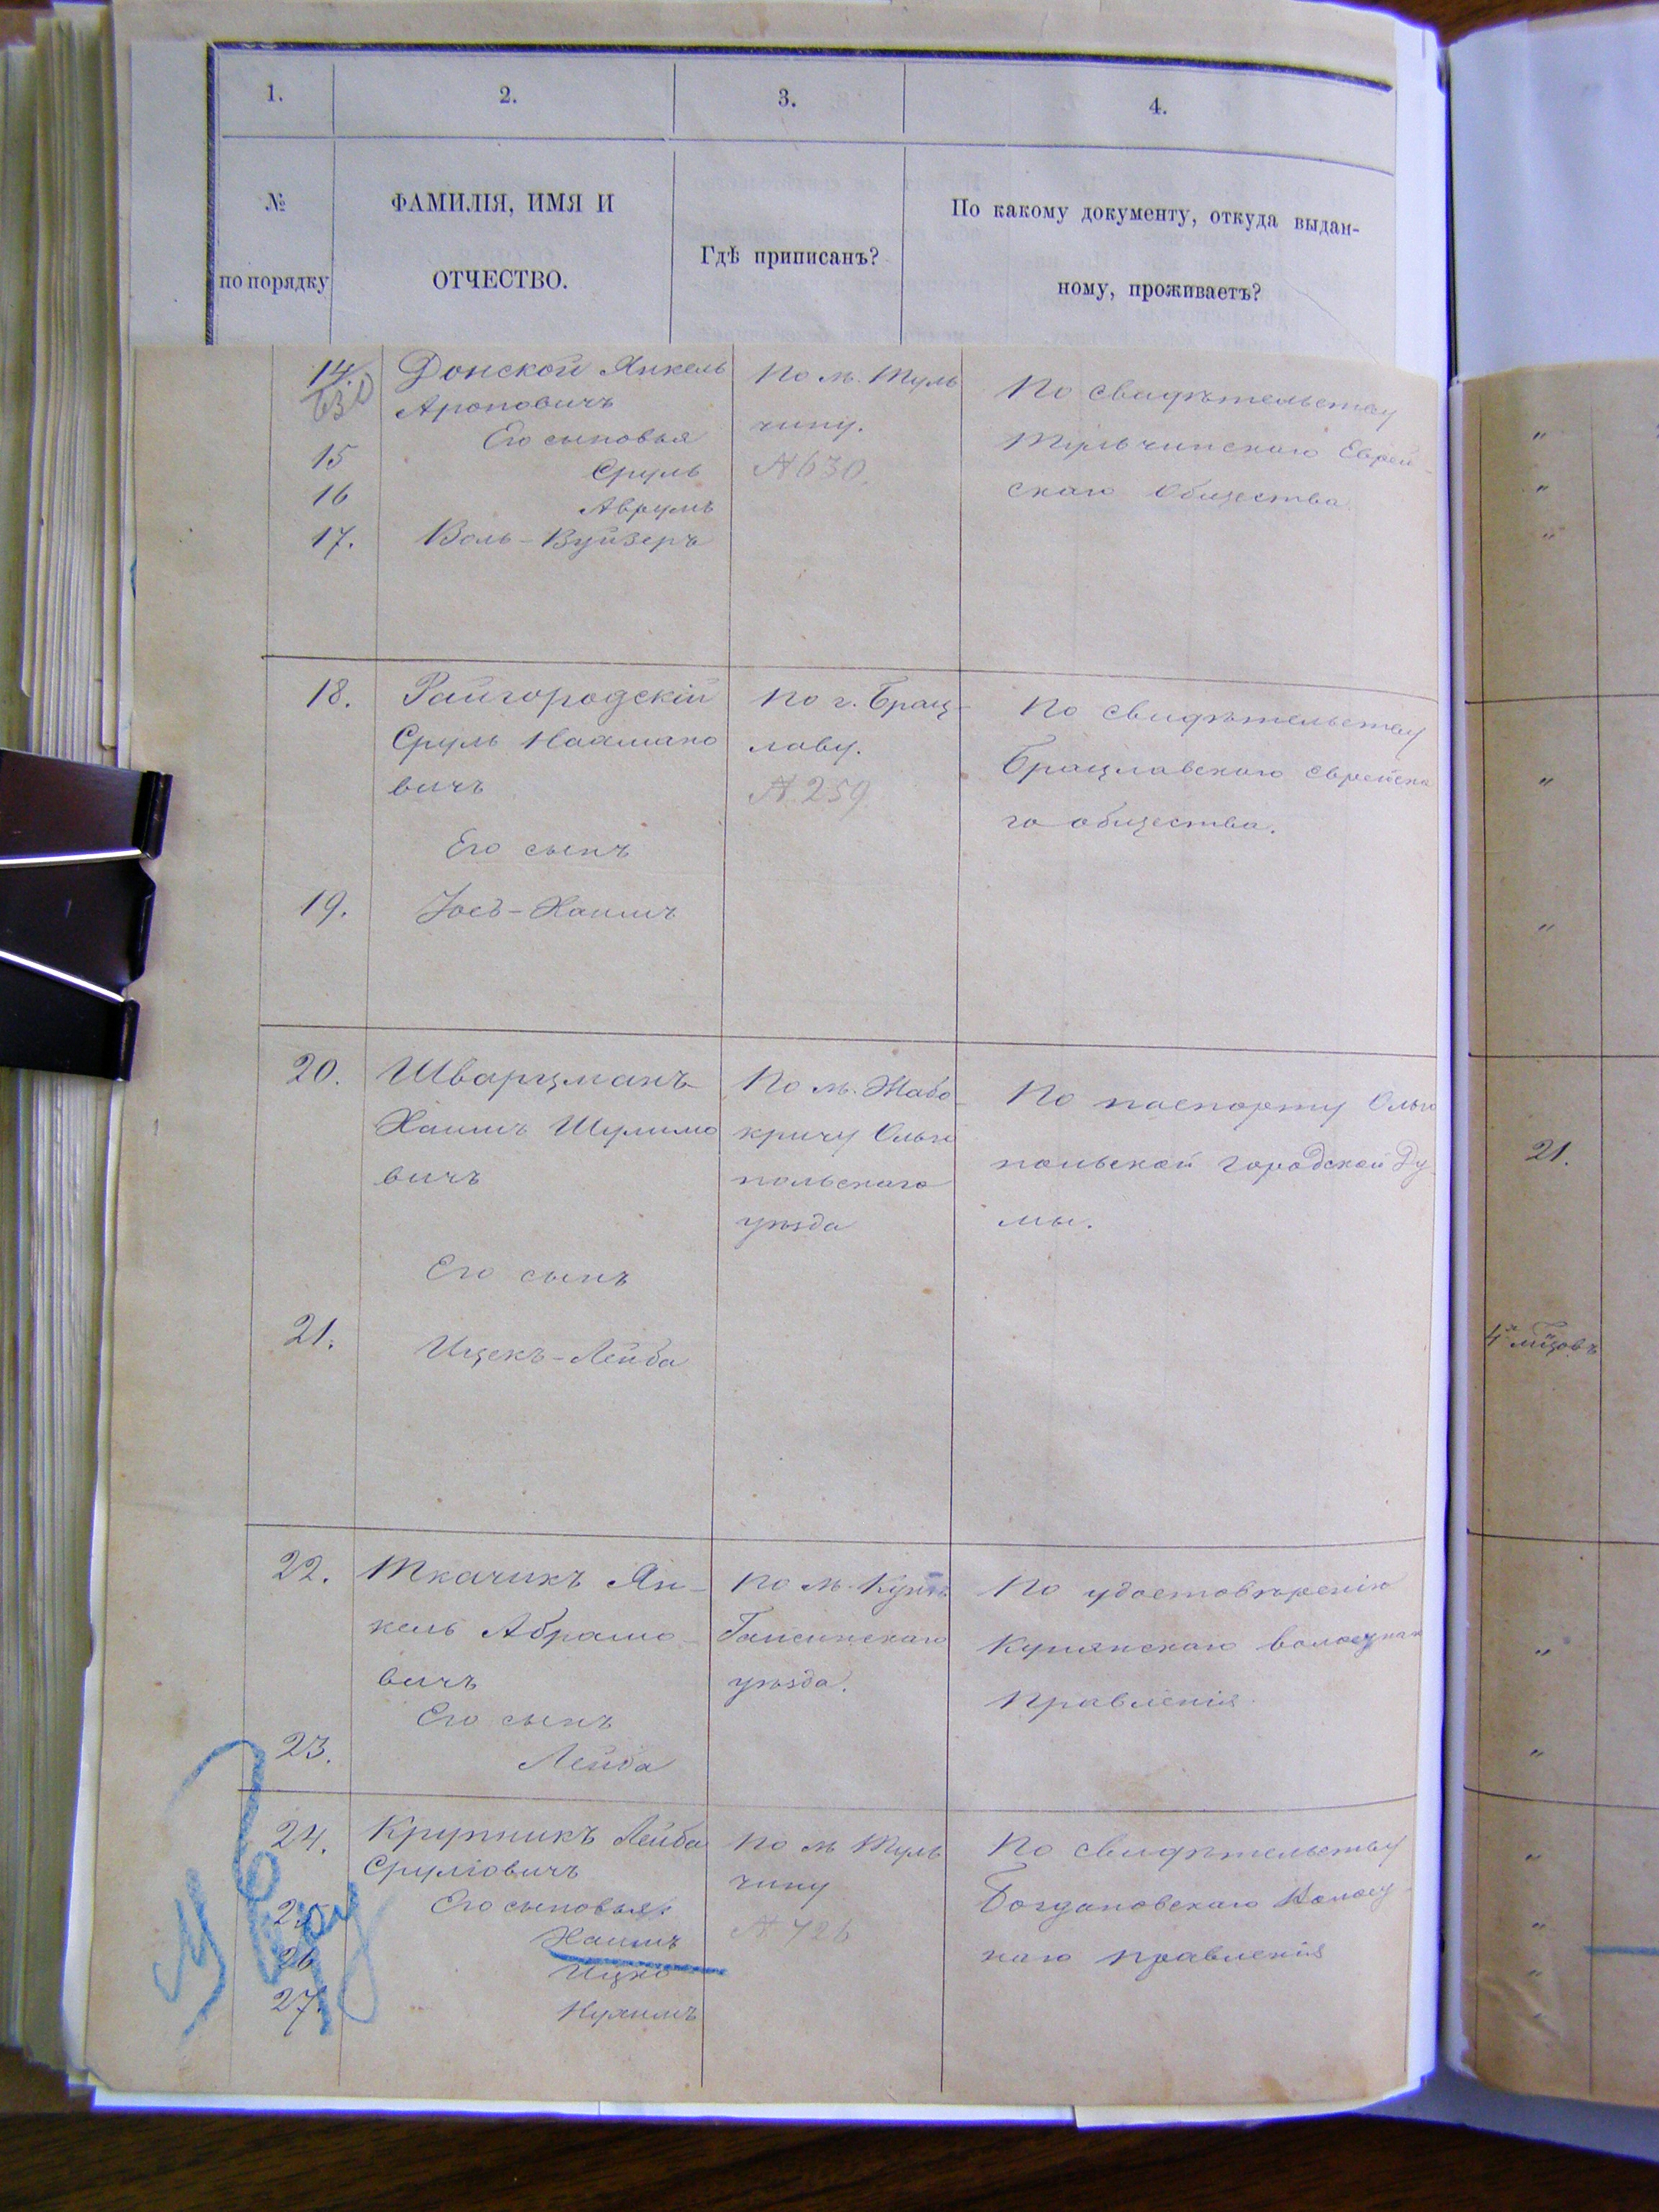 1.
2.
3.
4.
№
по порядку
ФАМИЛІЯ, ИМЯ И
ОТЧЕСТВО.
Гдѣ приписанъ?
По какому документу, откуда выдан-
ному, проживаетъ?
14.
630
Донской Янкель
Ароновичъ
Его сыновья
15
Сруль
16
Аврумъ
17.
Воль-Вуйзеръ
По м. Туль
чину.
№ 630.
По свидѣтельству
Тульчинскаго Еврей-
скаго общества
"
"
"
18.
Райгородскій
Сруль Нахмано
вичъ
Его сынъ
19.
Іосъ-Хаимъ
По г. Брац-
лаву.
№ 259
По свидѣтельству
Брацлавскаго еврейска
го общества.
"
"
20.
Шварцманъ
Хаимъ Шулимо
вичъ
Его сынъ
21.
Ицекъ-Лейба
По м. Жабо-
кричу Ольго
польскаго
уѣзда
По паспорту Ольго
польской городской Ду
мы.
21.
22.
Ткачикъ Ян-
кель Абрамо-
вичъ
Его сынъ
23.
Лейба
По м. Кунѣ
Гайсинскаго
уѣзда.
По удостовѣренію
Кунянскаго волостнаго
правленія.
"
"
24.
Крупникъ Лейба
Сруліовичъ
Его сыновья:
25
Хаимъ
26
Ицко
27.
Нухимъ
По м Туль
чину
№ 726
По свидѣтельству
Богдановскаго Волост
наго правленія
"
"
"
"